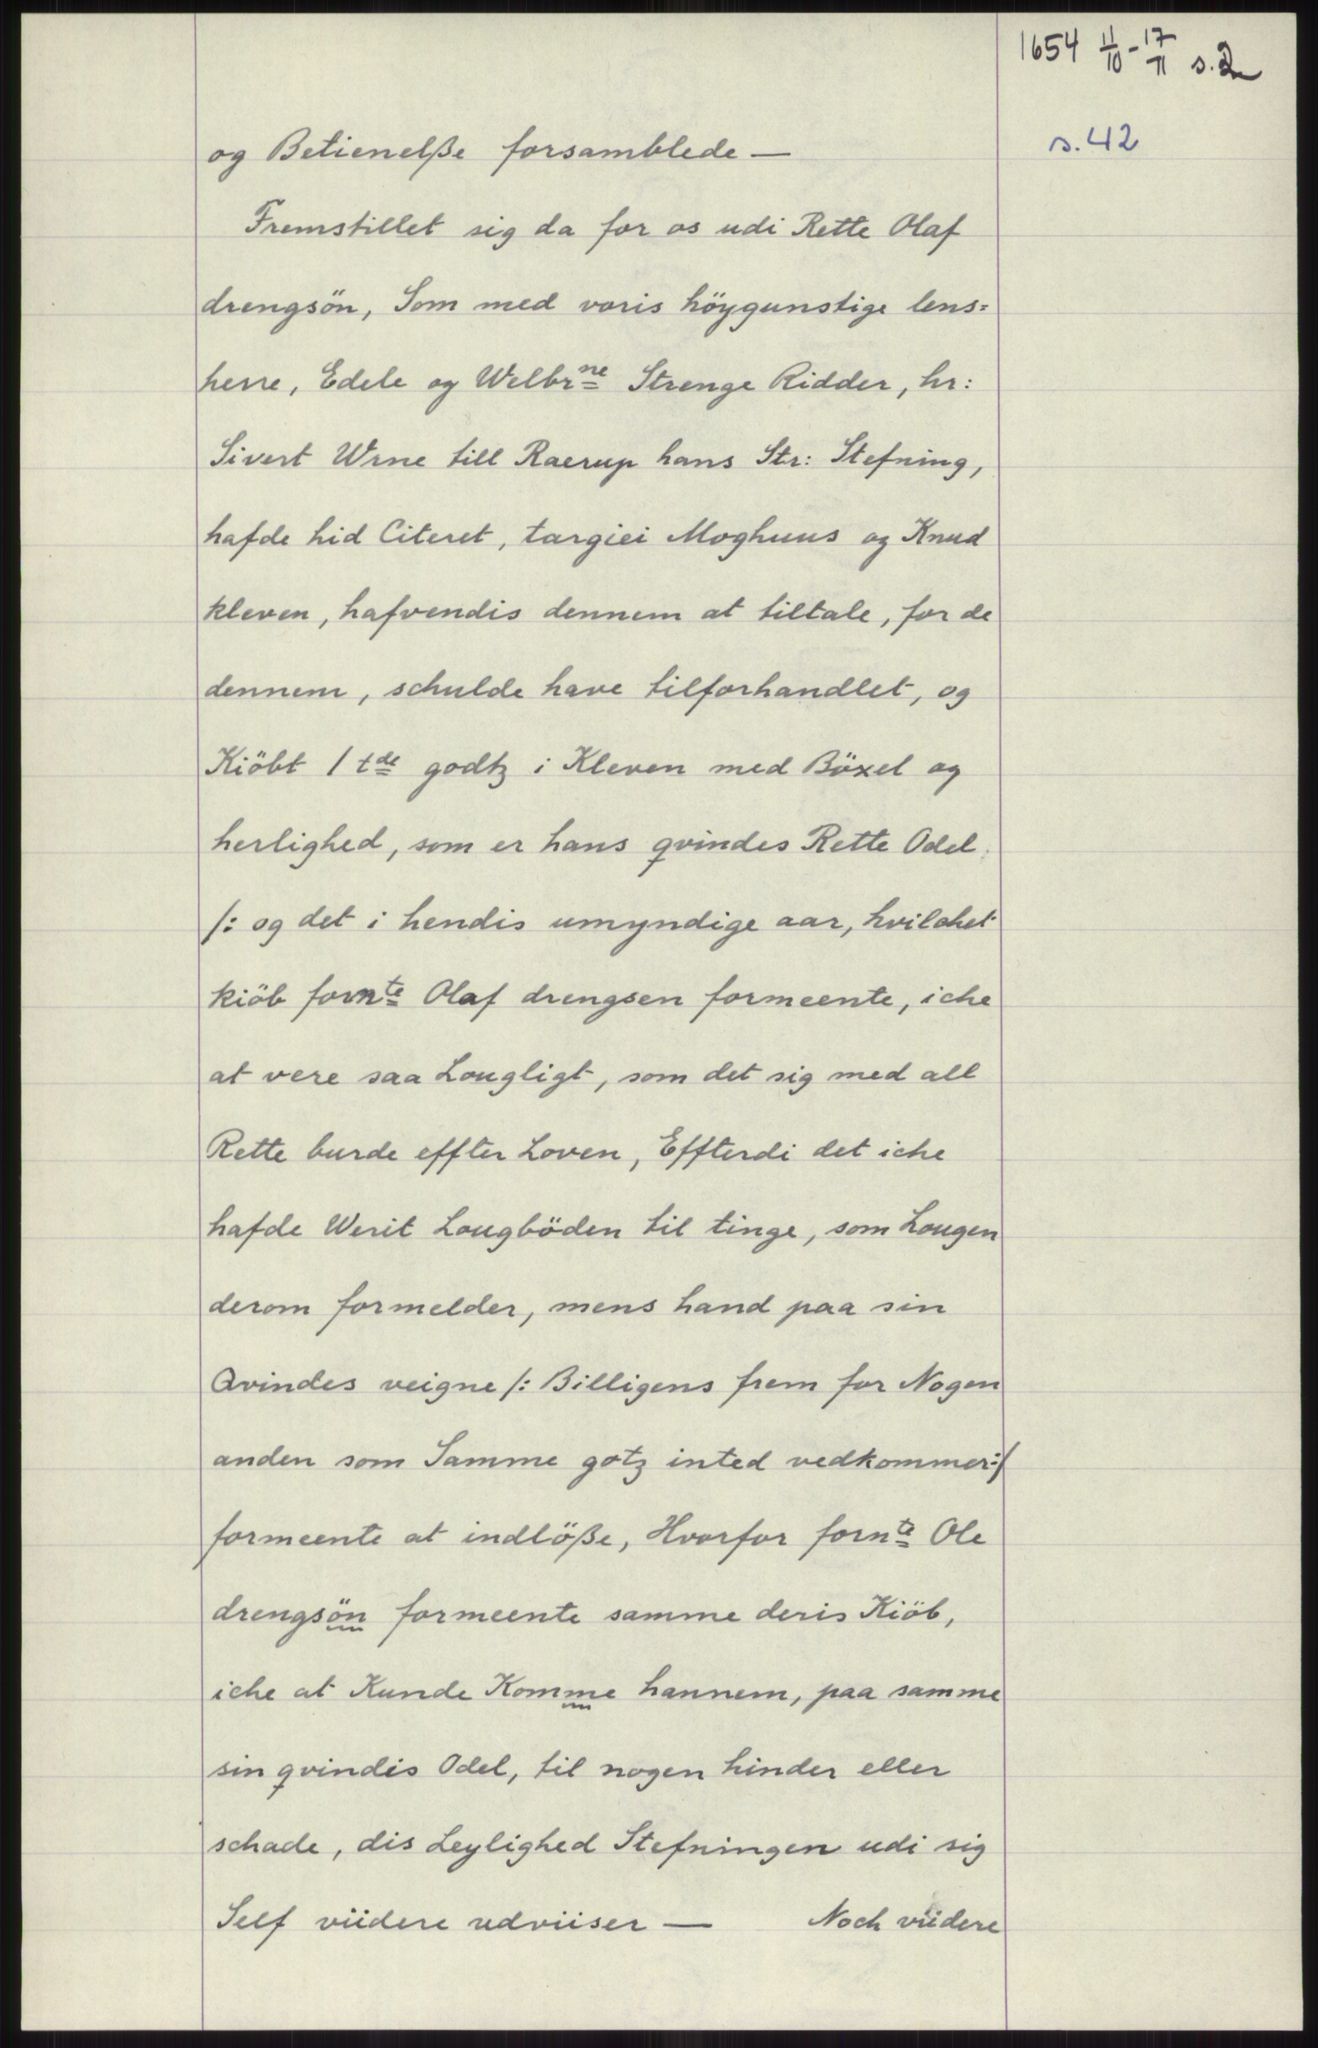 1654 11/10 - 17/11 s. 2
s. 42
og Betienelße forsamblede —
Fremstillet sig da for os udi Rette Olaf
drengsön, Som med voris höygunstige lens=
herre, Edele og Welbrne Strenge Ridder, hr:
Sivert Wrne till Raerup hans Str: Stefning,
hafde hid Citeret, targiei Moghuus og Knud
kleven, hafvendis dennem at tiltale, for de
dennem, schulde have tilforhandlet, og
Kiöbt 1 tde godtz i Kleven med Böxel og
herlighed, som er hans qvindes Rette Odel
/: og det i hendis umyndige aar, hvilchet
kiöb fornte Olaf drengsen formeente, iche
at vere saa Lougligt, som det sig med all
Rette burde effter Loven, Effterdi det iche
hafde Werit Lougböden til tinge, som Lougen
derom formelder, mens hand paa sin
Qvindes veigne /: Billigens frem for Nogen
anden som Samme gotz inted vedkommer:/
formeente at indlöße, Hvorfor fornte Ole
drengsön formeente samme deris Kiöb,
iche at Kunde Komme hannem, paa samme
sin qvindis Odel, til nogen hinder eller
schade, dis Leylighed Stefningen udi sig
Self viidere udviiser — Noch viidere